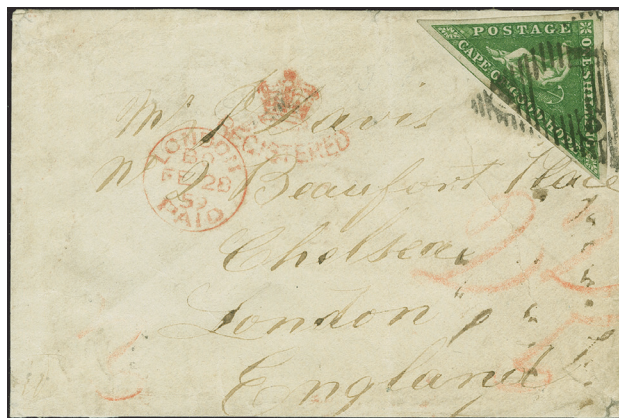 POSTAGE
CAPE OF GOOD HOPE
ONE SHILLING
REGISTERED
LONDON
FE 28
59
PAID
Mr Davis
No 2 Beaufort Place
Chelsea
London
England